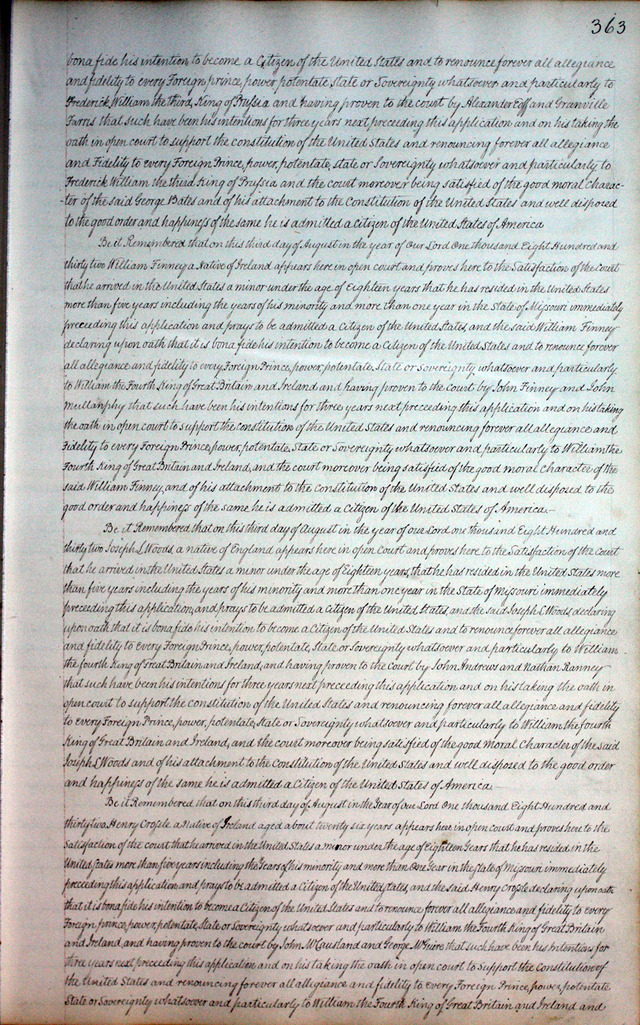 363
bona fide his intention to become a Citizen of the United States and to renounce forever all allegiance
and fidelity to every Foreign prince, power, potentate, State or Sovereignty whatsoever and particularly to
Frederick William the third, King of Prussia and having proven to the court by Alexander Eoff and Granville
Farris that such have been his intentions for three years next preceeding this application and on his taking the
oath in open court to support the constitution of the United States and renouncing forever all allegiance
and Fidelity to every Foreign Prince, power, potentate, State or Sovereignty whatsoever and particularly to
Frederick William the third King of Prussia and the court moreover being satisfied of the good moral charac-
ter of the said George Bates and of his attachment to the Constitution of the United States and well disposed
to the good order and happiness of the same he is admitted a Citizen of the United States of America
Be it Remembered that on this third day of August in the year of Our Lord One thousand Eight Hundred and
thirty two William Finney a Native of Ireland appears here in open court and proves here to the Satisfaction of the Court
that he arrived in the United States a minor under the age of eighteen years that he has resided in the United States
more than five years including the years of his minority and more than one year in the State of Missouri immediately
preceeding this application and prays to be admitted a Citizen of the United States and the said William Finney
declaring upon oath that it is bona fide his intention to become a Citizen of the United States and to renounce forever
all allegiance and fidelity to every Foreign Prince, power, potentate, State or Sovereignty whatsoever and particularly
to William the Fourth King of Great Britain and Ireland and having proven to the Court by John Finney and John
Mullanphy that such have been his intentions for three years next preceeding this application and on his taking
the oath in open court to support the constitution of the United States and renouncing forever all allegiance and
Fidelity to every Foreign Prince, power, potentate, State or Sovereignty whatsoever and particularly to William the
Fourth King of Great Britain and Ireland, and the court moreover being satisfied of the good moral character of the
said William Finney, and of his attachment to the Constitution of the United States and well disposed to the
good order and happiness of the same he is admitted a Citizen of the United States of America.—
Be it Remembered that on this third day of August in the year of our Lord one thousand Eight Hundred and
thirty two Joseph L Woods a native of England appears here in open Court and proves here to the Satisfaction of the Court
that he arrived in the United States a minor under the age of Eighteen years, that he has resided in the United States more
than five years including the years of his minority and more than one year in the State of Missouri immediately
preceeding this application, and prays to be admitted a Citizen of the United States, and the said Joseph L Woods declaring
upon oath that it is bona fide his intention to become a Citizen of the United States and to renounce forever all allegiance
and fidelity to every Foreign Prince, power, potentate, State or Sovereignty whatsoever and particularly to William
the fourth King of Great Britain and Ireland, and having proven to the Court by John Andrews and Nathan Ranney
that such have been his intentions for three years next preceeding this application and on his taking the oath in
open court to support the constitution of the United States and renouncing forever all allegiance and fidelity
to every Foreign Prince, power, potentate, State or Sovereignty whatsoever and particularly to William the fourth
King of Great Britain and Ireland, and the court moreover being satisfied of the good moral Character of the said
Joseph L Woods and of his attachment to the Constitution of the United States and well disposed to the good order
and happiness of the same he is admitted a Citizen of the United States of America.—
Be it Remembered that on this third day of August in the Year of our Lord One thousand Eight Hundred and
thirty two, Henry Crossle a Native of Ireland aged about twenty six years appears here in open court and proves here to the
Satisfaction of the court that he arrived in the United States a minor under the age of Eighteen Years that he has resided in the
United States more than five years including the Years of his minority and more than One Year in the State of Missouri immediately
preceeding this application and prays to be admitted a Citizen of the United States, and the said Henry Crossle declaring upon oath
that it is bona fide his intention to become a Citizen of the United States and to renounce forever all allegiance and fidelity to every
Foreign prince, power, potentate, State or Sovereignty whatsoever and particularly to William the Fourth King of Great Britain
and Ireland, and having proven to the court by John McCausland and George McGuire that such have been his Intentions for
three years next preceeding this application and on his taking the oath in open court to support the Constitution of
the United States and renouncing forever all allegiance and fidelity to every Foreign Prince, power, potentate
State or Sovereignty whatsoever and particularly to William the Fourth King of Great Britain and Ireland and